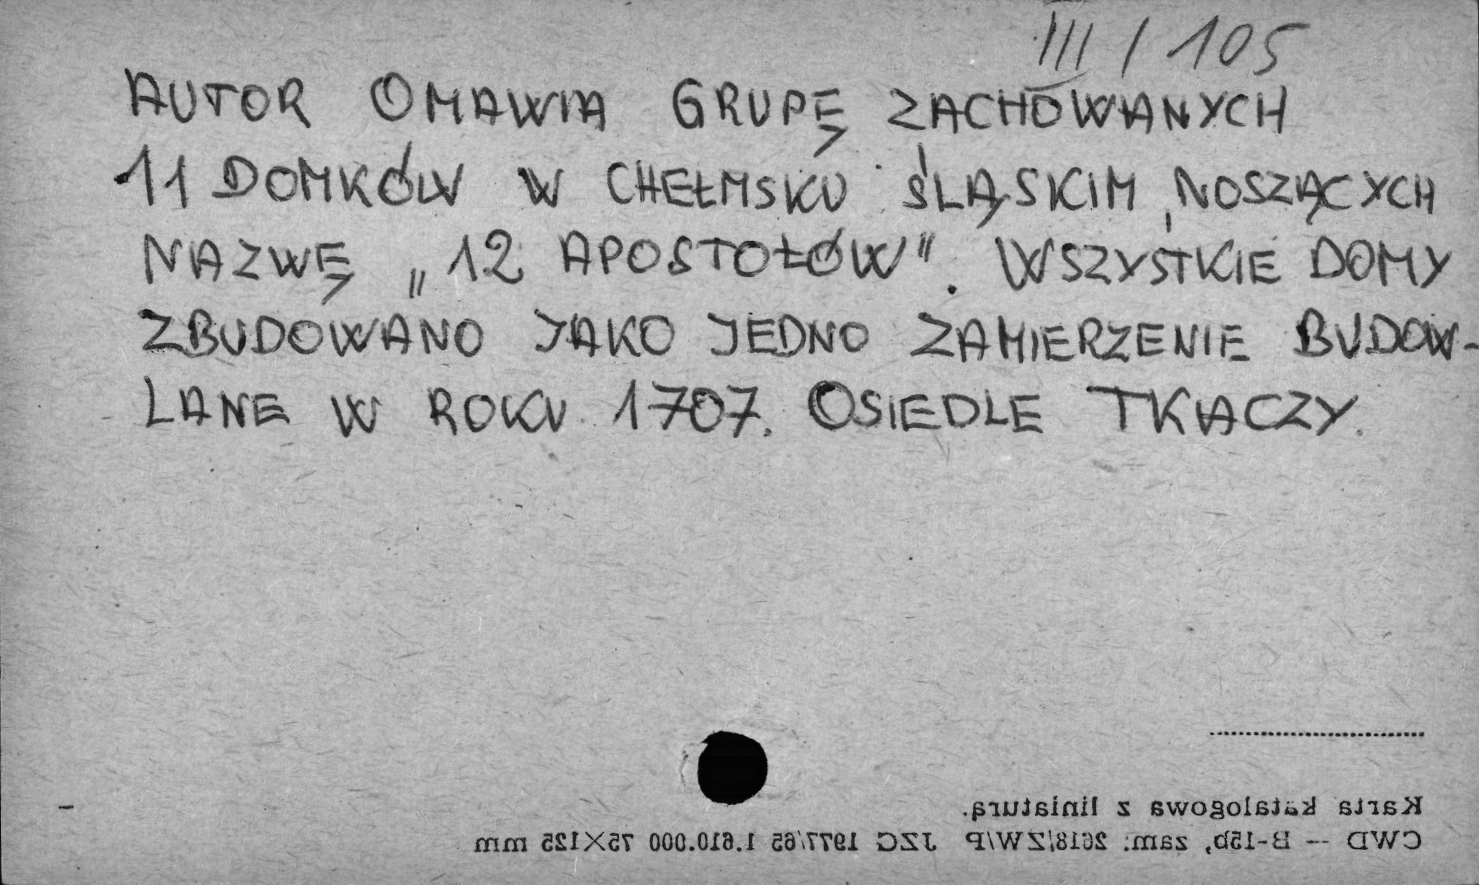 III / 105
AUTOR OMAWIA GRUPĘ ZACHOWANYCH
11 DOMKÓW W CHEŁMSKU ŚLĄSKIM, NOSZĄCYCH
NAZWĘ „12 APOSTOŁÓW". WSZYSTKIE DOMY
ZBUDOWANO JAKO JEDNO ZAMIERZENIE BUDOW-
LANE W ROKU 1707. OSIEDLE TKACZY.
Karta katalogowa z liniaturą.
CWD — B-15b, zam. 2618/ZW/P JZG 1977/65 1.610.000 75×125 mm